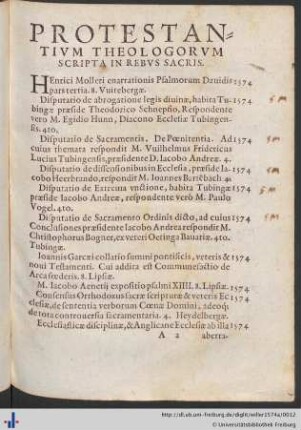 PROTESTAN-
TIVM THEOLOGORVM
SCRIPTA IN REBVS SACRIS.
HEnrici Molleri enarrationis Psalmorum Dauidis 1574
pars tertia. 8. Vuitebergæ.
Disputatio de abrogatione legis diuinæ, habita Tu- 1574
bingæ præside Theodorico Schnepfio, Respondente
vero M. Egidio Hunn, Diacono Ecclesiæ Tubingen-
sis. 4to.
Disputatio de Sacramentis. De Pœnitentia. Ad 1574
cuius themata respondit M. Vuilhelmus Fridericus
Lucius Tubingensis, præsidente D. Iacobo Andreæ. 4.
Disputatio de dissensionibus in Ecclesia, præside Ia- 1574
cobo Heerbrando, respondit M. Ioannes 4.
Disputatio de Extrema vnctione, habita Tubingæ 1574
præside Iacobo Andreæ, respondente verò M. Paulo
Vogel. 4to.
Disputatio de Sacramento Ordinis dicto, ad cuius 1574
Conclusiones præsidente Iacobo Andrea respondit M.
Christophorus Bogner, ex veteri Oetinga Bauariæ. 4to.
Tubingæ.
Ioannis Garcæi collatio summi pontificis, veteris & 1574
noui Testamenti. Cui addita est Commonefactio de
Arca fœderis. 8. Lipsiæ.
M. Iacobi Aenetij expositio psalmi XIIII. 8. Lipsiæ. 1574
Consensus Orthodoxus sacræ scripturæ & veteris Ec 1574
clesiæ, de sententia verborum Cœnæ Domini, adeoq́;
de tota controuersia sacramentaria. 4. Heydelbergæ.
Ecclesiasticæ disciplinæ, & Anglicanæ Ecclesiæ ab illa 1574
A a aberra-
http://dl.ub.uni-freiburg.de/diglit/weller1574a/0012
© Universitätsbibliothek Freiburg